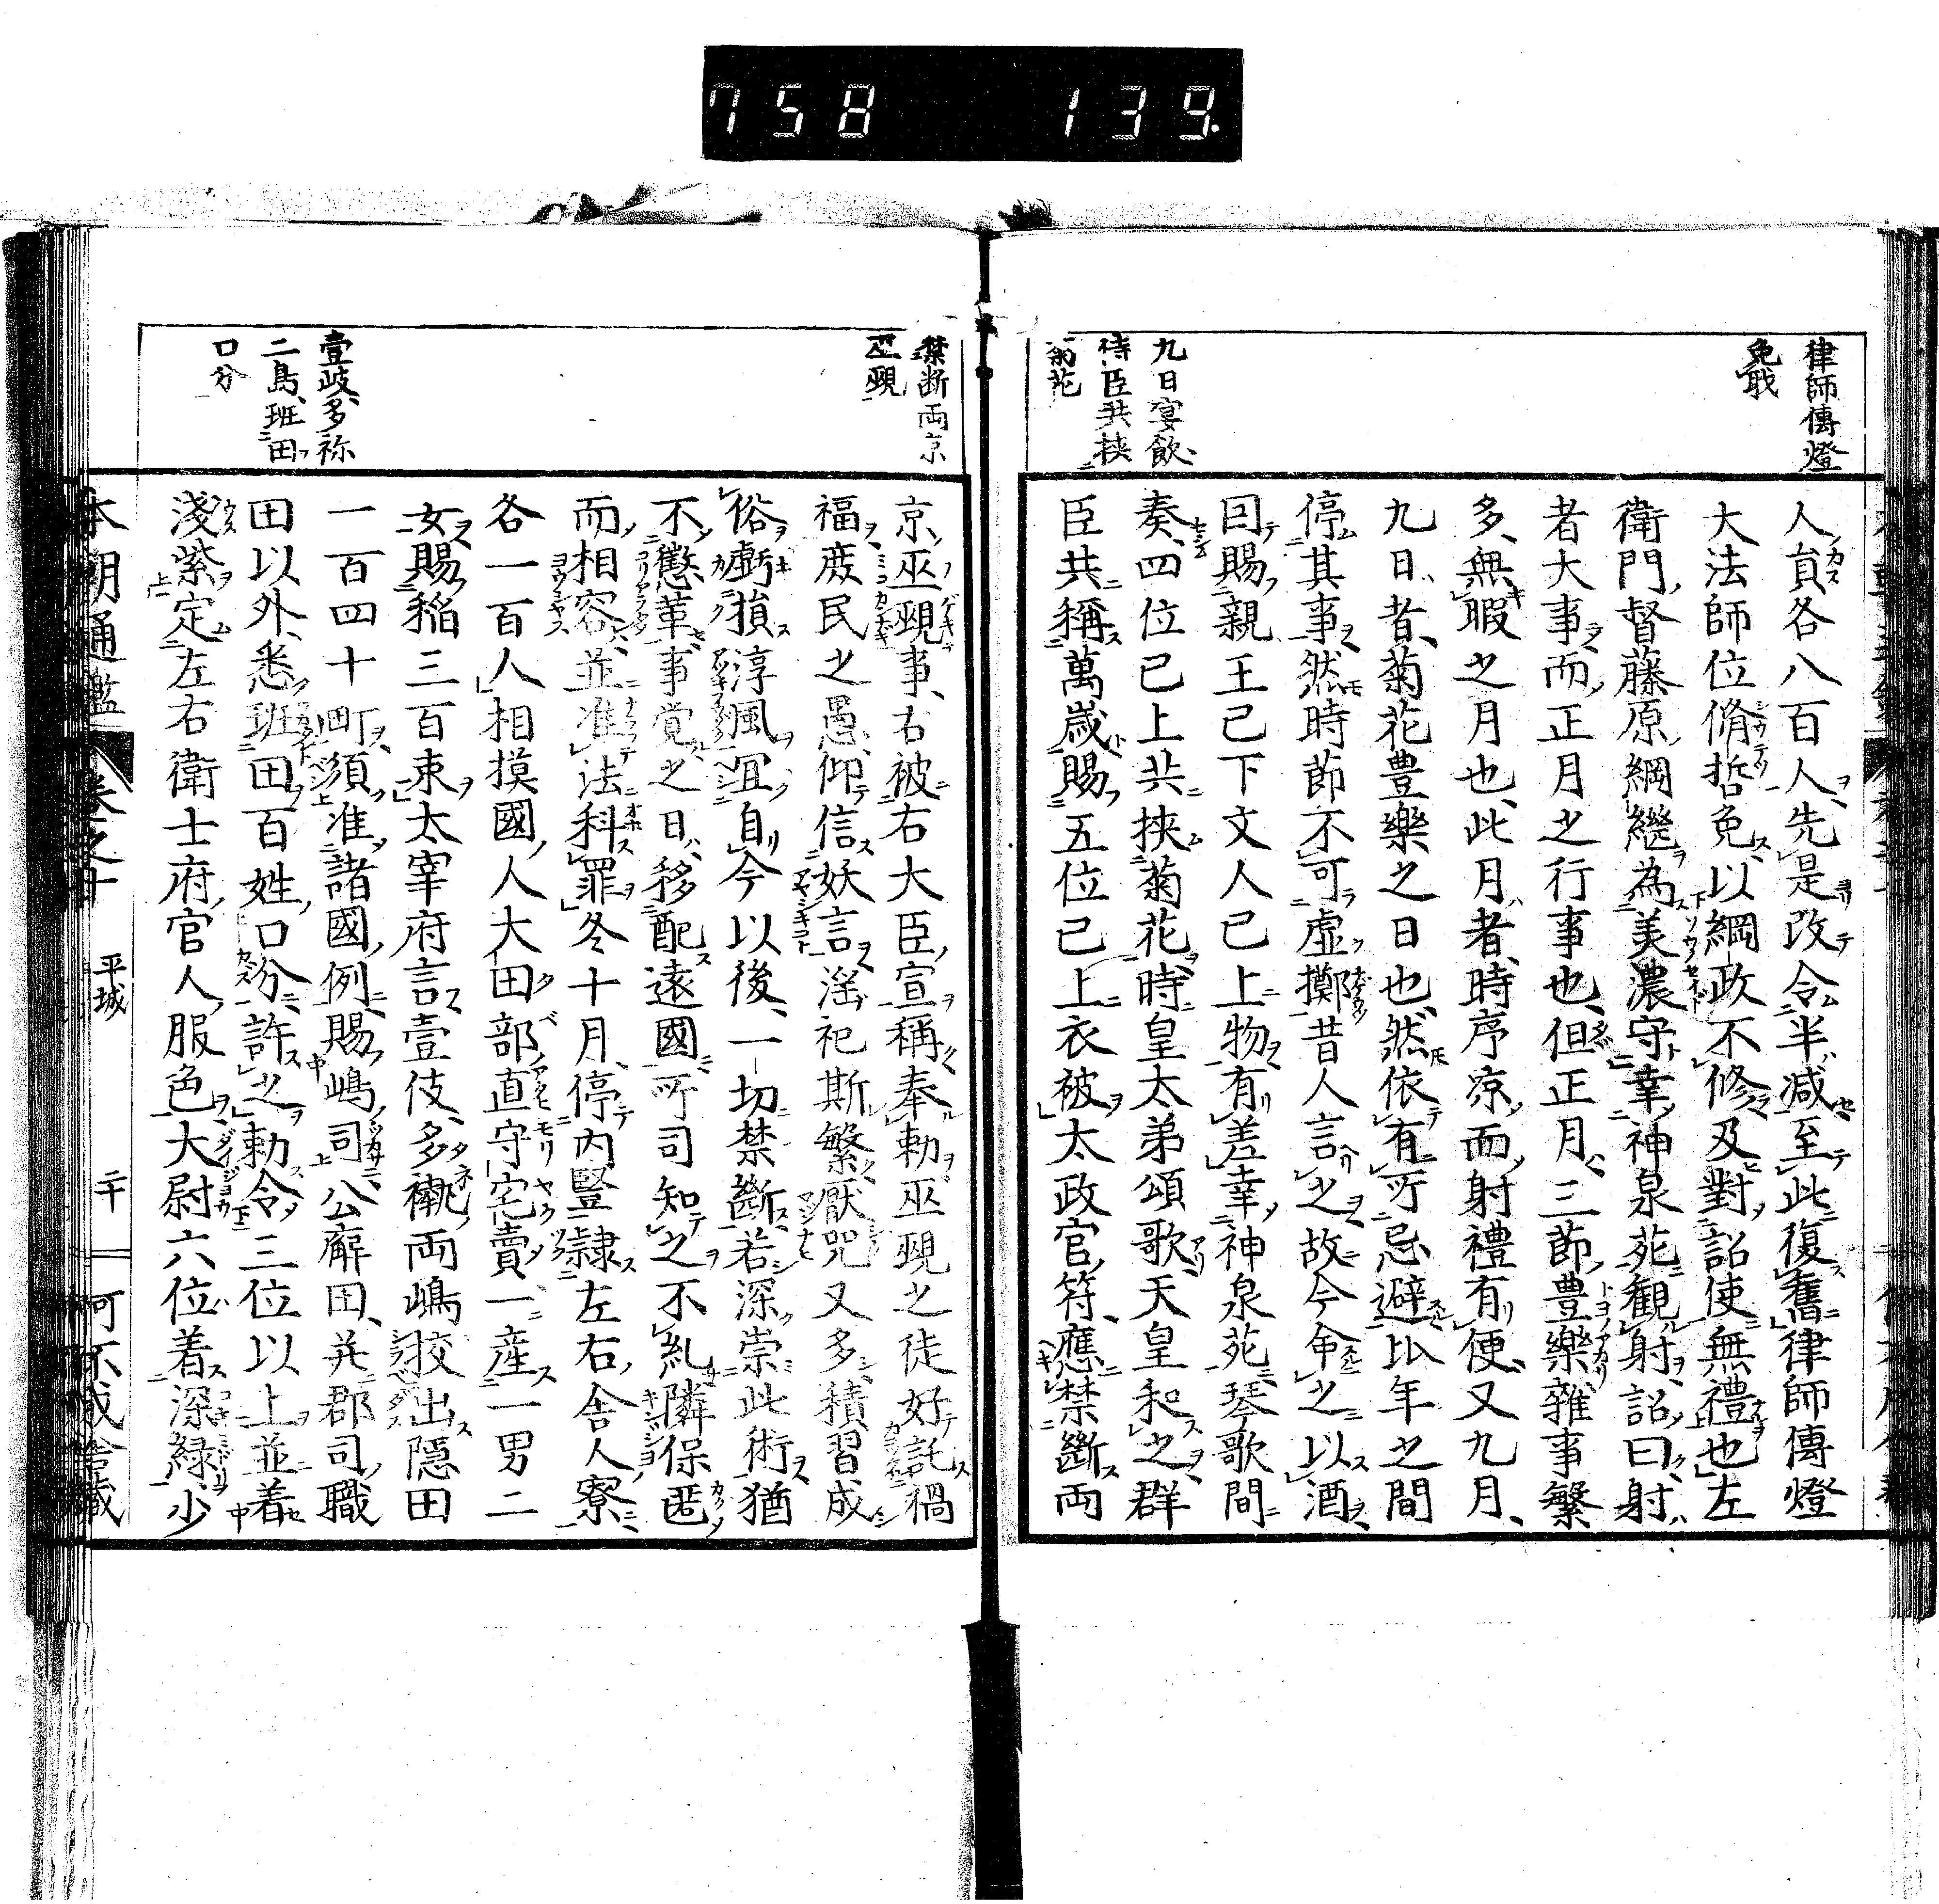 758 139.
律師傳燈
免職
九日宴飲
侍臣共挾
菊花
人貟各八百人先是改令半減至此復舊律師傳燈
大法師位脩哲免以綱政不修及對詔使無禮也左
衛門督藤原綱繼為美濃守幸神泉苑觀射詔曰射
者大事而正月之行事也但正月三節豊樂雜事繁
多無暇之月也此月者時序凉而射禮有便又九月
九日者菊花豊樂之日也然依有所忌避比年之間
停其事然時節不可虚擲昔人言之故今命之以酒
回賜親王已下文人已上物有差幸神泉苑琴歌間
奏四位已上共挾菊花時皇太弟頌歌天皇和之群
臣共稱萬歳賜五位已上衣被太政官符應禁斷両
禁断両京
巫覡
壹岐多祢
二島班田
口分
京巫覡事右被右大臣宣稱奉勅巫覡之徒好託禍
福庻民之愚仰信妖言淫祀斯繁厭咒又多積習成
俗虧損淳風宜自今以後一切禁斷若深崇此術猶
不懲革事覚之日移配遠國所司知之不糺隣保匿
而相容並准法科罪冬十月停内豎隷左右舎人寮
各一百人相摸國人大田部直守宅賣一産一男二
女賜稲三百束太宰府言壹伎多褹両嶋挍出隠田
一百四十町須准諸國例賜嶋司公廨田并郡司職
田以外悉班田百姓口分許之勅令三位以上並着
淺紫定左右衛士府官人服色大尉六位着深緑少
本朝通鑑 卷之十 平城 二十